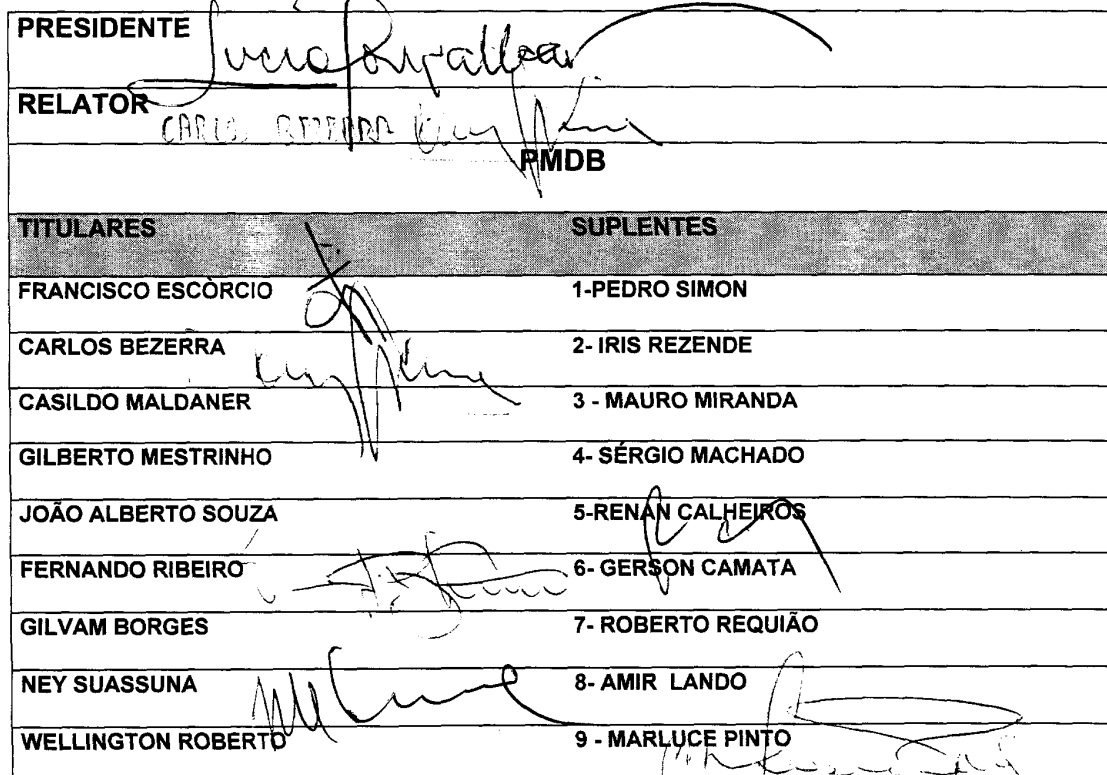 PRESIDENTE
RELATOR
CARLOS BEZERRA
PMDB
TITULARES SUPLENTES
FRANCISCO ESCÒRCIO 1-PEDRO SIMON
CARLOS BEZERRA 2- IRIS REZENDE
CASILDO MALDANER 3 - MAURO MIRANDA
GILBERTO MESTRINHO 4- SÉRGIO MACHADO
JOÃO ALBERTO SOUZA 5-RENAN CALHEIROS
FERNANDO RIBEIRO 6- GERSON CAMATA
GILVAM BORGES 7- ROBERTO REQUIÃO
NEY SUASSUNA 8- AMIR LANDO
WELLINGTON ROBERTO 9 - MARLUCE PINTO